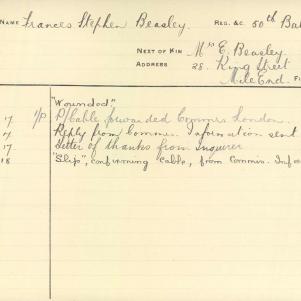 NAME Frances Stephen Beasley REG. &C. 50th Bat
NEXT OF KIN Mrs E. Beasley
ADDRESS 28. King Street
Mile End.
"Wounded"
17 P/Cable forwarded Commrs London.
Reply from Commrs. Information sent
17 Letter of thanks from inquirer
18 "Slip", confirming cable, from Commis. Info